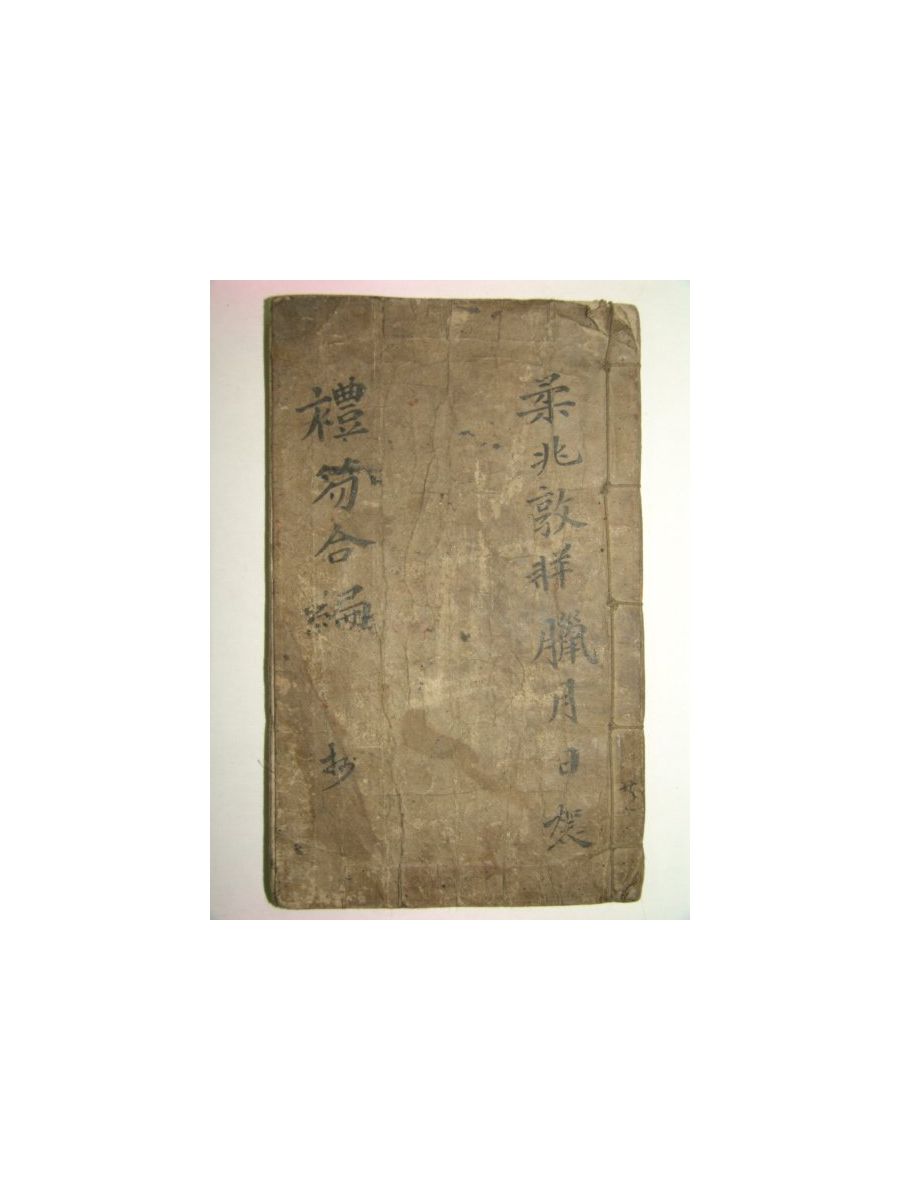 柔兆敦牂臘月日裝
禮笏合編 抄
共一